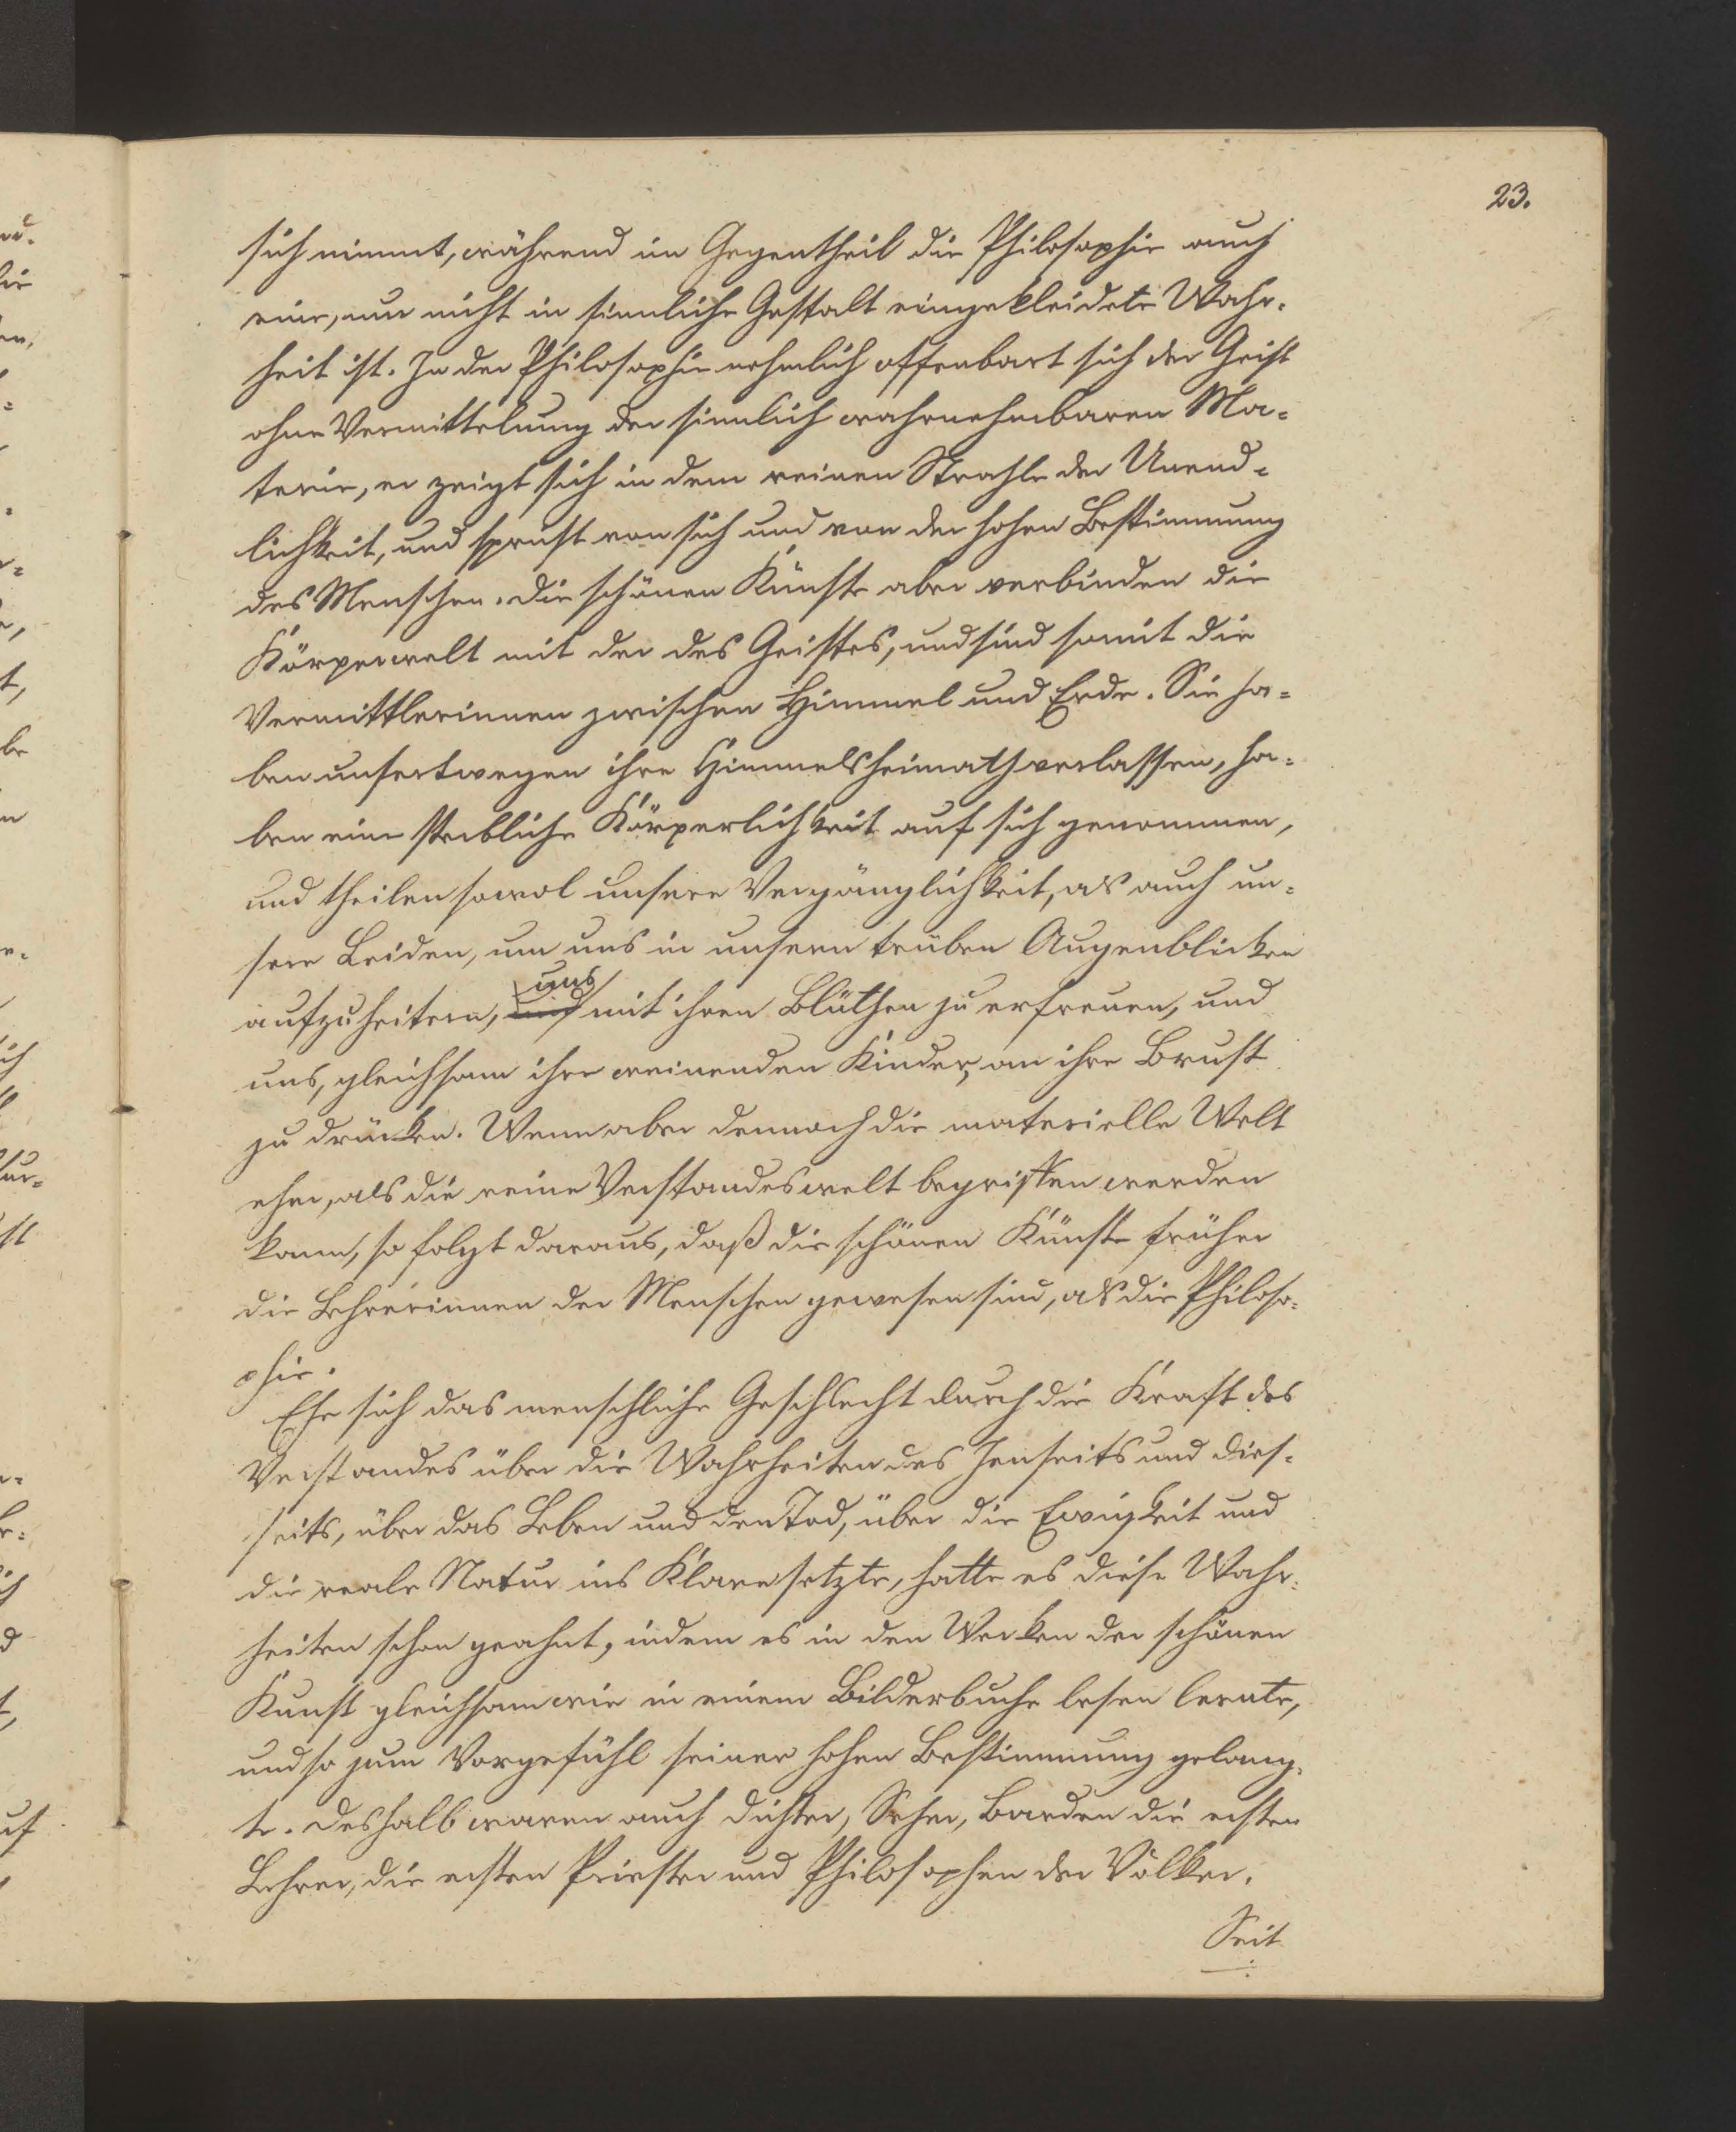 23.
sich nimmt, während im Gegentheil die Philosophie auch
eine, nur nicht in sinnliche Gestalt eingekleidete Wahr-
heit ist. In der Philosophie nehmlich offenbart sich der Geist
ohne Vermittelung der sinnlich wahrnehmbaren Ma-
terie, er zeigt sich in dem reinen Strahle der Unend-
lichkeit, und spricht von sich und von der hohen Bestimmung
des Menschen. Die schönen Künste aber verbinden die
Körperwelt mit der des Geistes, und sind somit die
Vermittlerinnen zwischen Himmel und Erde. Sie ha-
ben unsertwegen ihre Himmelsheimath verlassen, ha-
ben eine sterbliche Körperlichkeit auf sich genommen,
und theilen sowol unsere Vergänglichkeit, als auch un-
sere Leiden, um uns in unsern trüben Augenblicken
aufzuheitern, uns mit ihren Blüthen zu erfreuen, und
uns, gleichsam ihre weinenden Kinder, an ihre Brust
zu drücken. Wenn aber dennoch die materielle Welt
eher, als die reine Verstandeswelt begriffen werden
kann, so folgt daraus, daß die schönen Künste früher
die Lehrerinnen der Menschen gewesen sind, als die Philoso-
phie.
Ehe sich das menschliche Geschlecht durch die Kraft des
Verstandes über die Wahrheiten des Jenseits und Dies-
seits, über das Leben und den Tod, über die Ewigkeit und
die reale Natur ins Klare setzte, hatte es diese Wahr-
heiten schon geahnt, indem es in den Werken der schönen
Kunst gleichsam wie in einem Bilderbuche lesen lernte,
und so zum Vorgefühl seiner hohen Bestimmung gelang-
te. Deshalb waren auch Dichter, Seher, Barden die ersten
Lehrer, die ersten Priester und Philosophen der Völker.
Seit